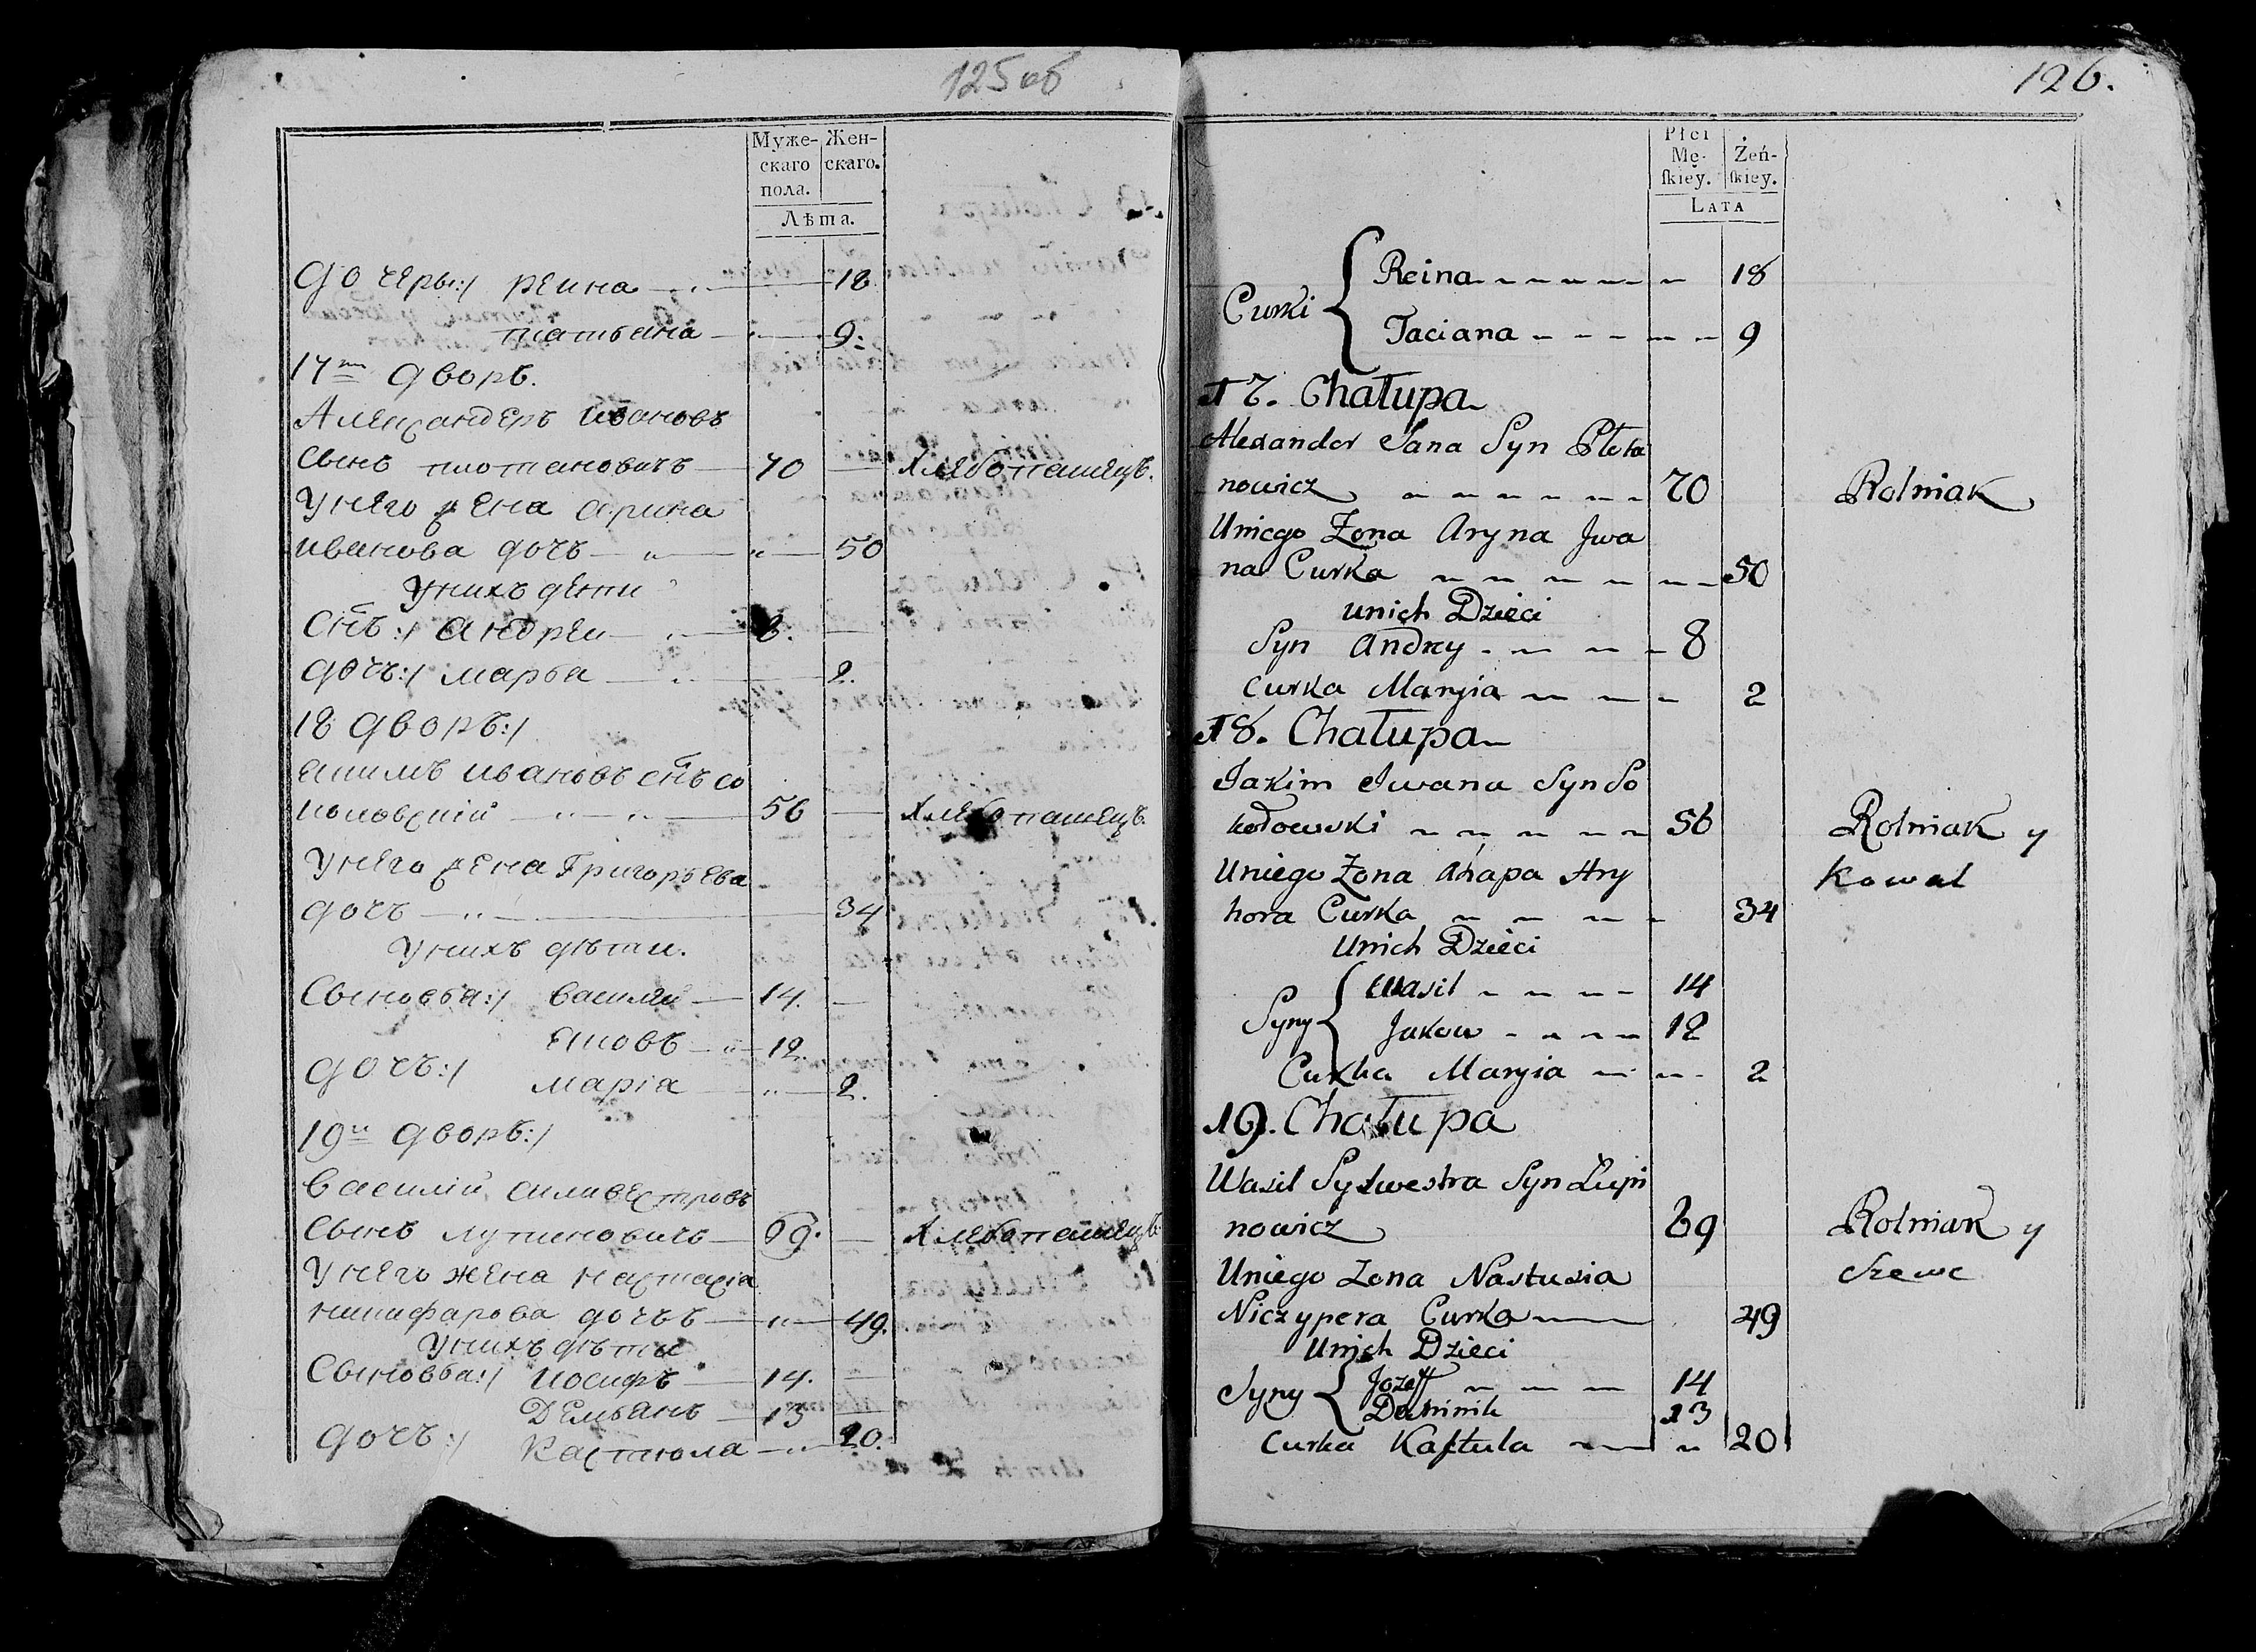 125 об
Муже-
скаго
пола.
Жен-
скаго.
Лѣта.
дочеры:/ реина 18
татьяна 9:
17м дворъ.
Александеръ ивановъ
сынъ плотановичъ 70 хлебопашецъ.
у него жена арина
иванова дочъ 50
у нихъ дѣти
снъ:/ андреи 8.
дочъ:/ марья 2.
18 дворъ:/
якимъ ивановъ снъ со
коловский 56 хлебопашецъ.
у него жена Григорьева
дочъ 34
у нихъ дѣти.
Сыновья:/ василей 14.
яковъ 12.
дочъ:/
марiа 2.
19й дворъ:/
василий силивестровъ
сынъ лупиновичъ 69. хлебопашецъ
у него жена настасiа
никифарова дочъ 49.
у нихъ дѣти
Сыновья:/ иосифъ 14.
Демьянъ 13
дочъ:/ Кастюла 20.
126.
Płci
Mę-
ſkiey.
Żeń-
ſkiey.
LATA
Curki
Reina 18
Taciana 9
17. Chałupa
Alexander Jana Syn Pleta
nowicz 70 Rolniak
Uniego Zona Aryna Jwa
na Curka 50
unich Dzieci
Syn Andrey 8
Curka Maryia 2
18. Chałupa
Jakim Iwana Syn So
kołowski 56 Rolniak y
Kowal
Uniego Zona Ahapa Hry
hora Curka 34
Unich Dzieci
Syny
Wasil 14
Jakow 12
Curka Maryia 2
19. Chałupa
Wasil Sylwestra Syn Łupi
nowicz 69 Rolniak y
Szewc
Uniego Zona Nastusia
Niczypera Curka 49
Unich Dzieci
Syny
Jozeff 14
Daminik 13
Curka Kaſtula 20